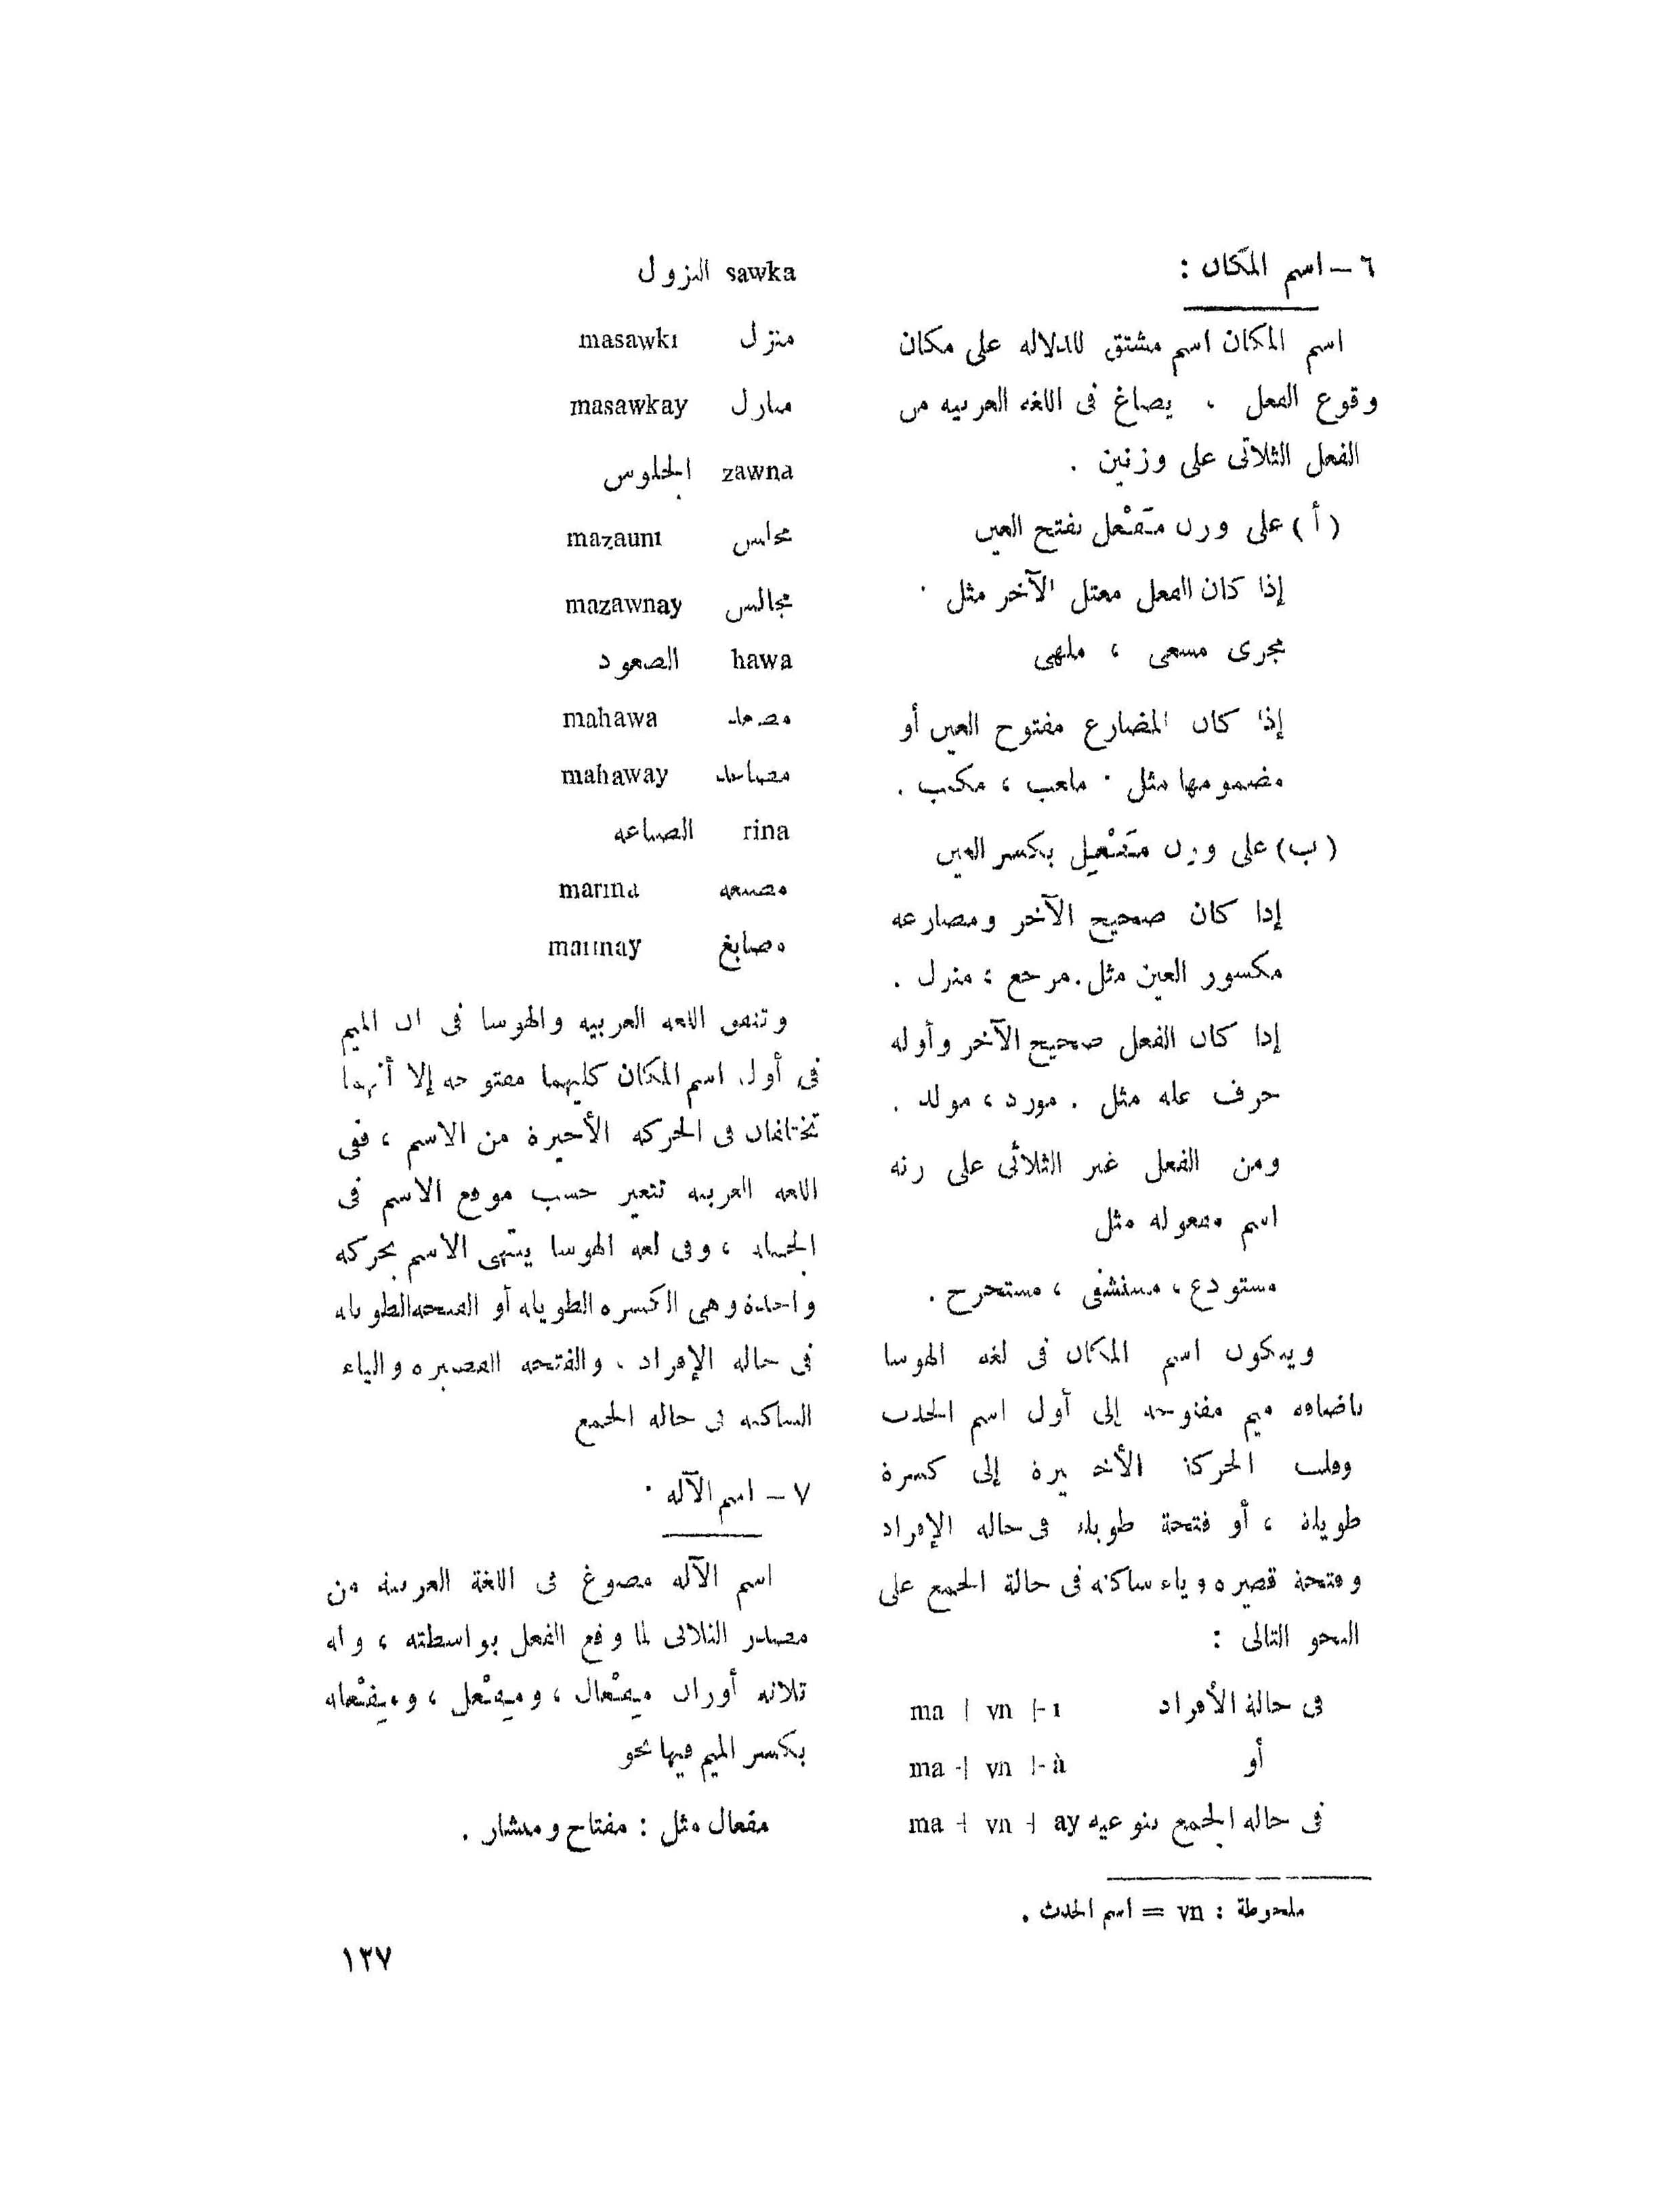 ٦ – اسم المكان :
اسم المكان اسم مشتق للدلالة على مكان
وقوع الفعل . يصاغ فى اللغة العربية من
الفعل الثلاثى على وزنين .
( أ ) على وزن مَفْعَل بفتح العين
إذا كان الفعل معتل الآخر مثل .
مجرى مسعى ، ملهى
إذا كان المضارع مفتوح العين أو
مضمومها مثل . ملعب ، مكتب .
( ب ) على وزن مَفْعِل بكسر العين
إذا كان صحيح الآخر ومضارعه
مكسور العين مثل . مرجع ، منزل .
إذا كان الفعل صحيح الآخر وأوله
حرف علة مثل . مورد ، مولد .
ومن الفعل غير الثلاثى على زنة
اسم مفعوله مثل
مستودع ، مستشفى ، مستخرج .
ويتكون اسم المكان فى لغة الهوسا
باضافة ميم مفتوحة إلى أول اسم الحدث
وقلب الحركة الأخيرة إلى كسرة
طويلة ، أو فتحة طويلة فى حالة الإفراد
وفتحة قصيرة وياء ساكنة فى حالة الجمع على
النحو التالى :
فى حالة الأفراد ma + vn + i
أو ma + vn + à
فى حالة الجمع بنوعيه ma + vn + ay
ملحوظة : vn = اسم الحدث .
sawka النزول
منزل masawki
منازل masawkay
zawna الجلوس
مجلس mazauni
مجالس mazawnay
hawa الصعود
مصعد mahawa
مصاعد mahaway
rina الصباغة
مصبغة marina
مصابغ marinay
وتتفق اللغة العربية والهوسا فى ان الميم
فى أول اسم المكان كليهما مفتوحة إلا أنهما
تختلفان فى الحركة الأخيرة من الاسم ، ففى
اللغة العربية تتغير حسب موقع الاسم فى
الجملة ، وفى لغة الهوسا ينتهى الاسم بحركة
واحدة وهى الكسرة الطويلة أو الفتحة الطويلة
فى حالة الإفراد . والفتحة القصيرة والياء
الساكنة فى حالة الجمع
٧ – اسم الآلة .
اسم الآلة مصوغ فى اللغة العربية من
مصدر الثلاثى لما وقع الفعل بواسطته ، وله
ثلاثة أوزان مِفْعال ، ومِفْعل ، ومِفْعلة
بكسر الميم فيها نحو
مفعال مثل : مفتاح ومنشار .
١٣٧